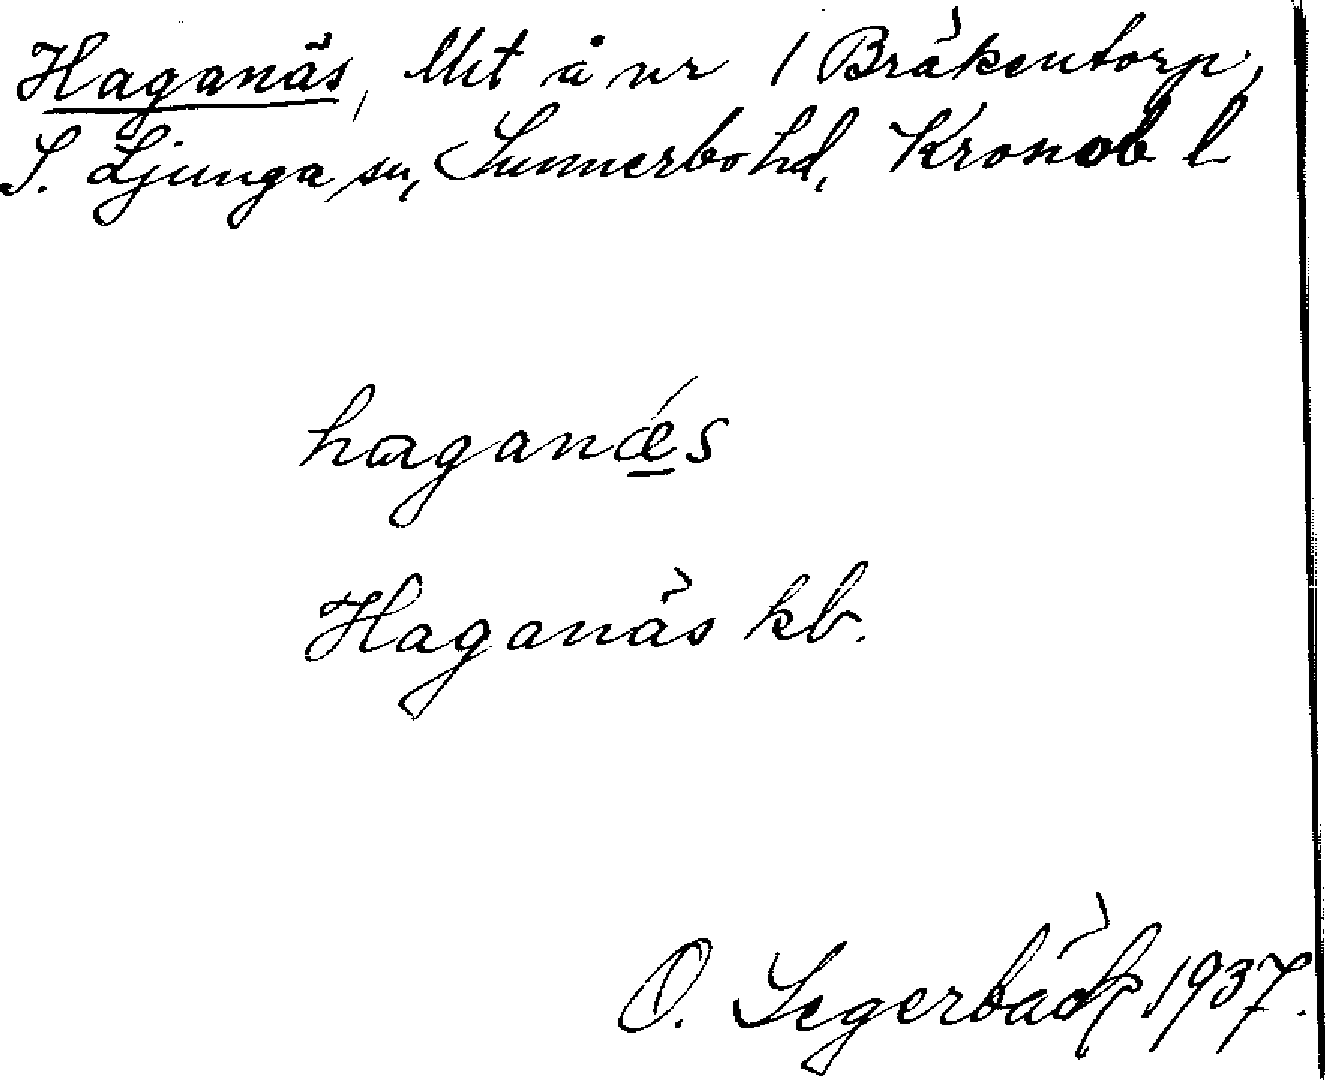 Haganäs, Ut å nr 1 Bräkentorp,
S. Ljunga sn, Sunnerbo hd, Kronob l
haganǽs
Haganäs kb.
O. Segerbäck 1937.